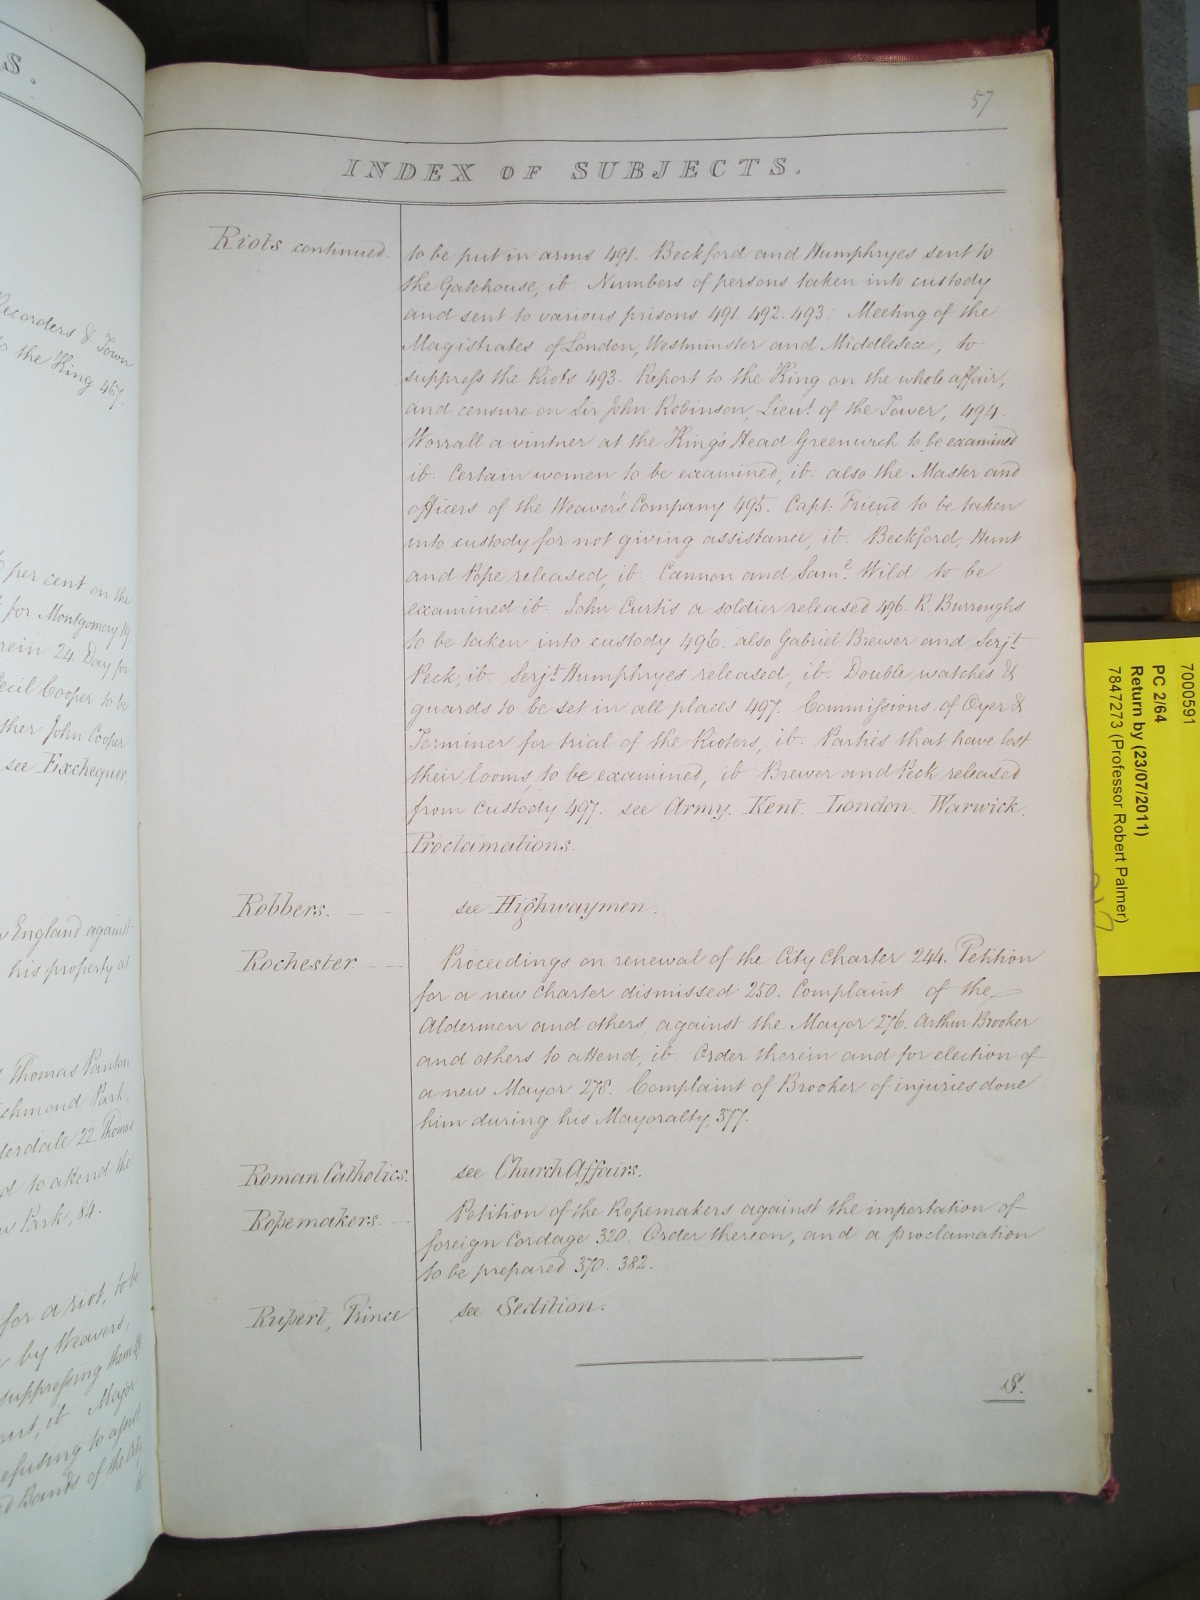 S.
Recorders & Town
to the King 467.
per cent on the
for Montgomery 19
rein 24. Day for
Cecil Cooper to be
ther John Cooper
see Exchequer
England against
his property at
Thomas Panton
ichmond Park.
derdale 22. Thomas
to attend the
Park, 84.
for a riot, to be
by Weavers,
suppressing them
it Major
efusing to assist
Bands of the
57
INDEX OF SUBJECTS.
Riots continued.
to be put in arms 491. Beckford and Humphryes sent to
the Gatehouse, ib. Numbers of persons taken into custody
and sent to various prisons 491. 492. 493: Meeting of the
Magistrates of London, Westminster and Middlesex, to
suppress the Riots 493. Report to the King on the whole affair,
and censure on Sir John Robinson, Lieut. of the Tower, 494.
Worrall a vintner at the King's Head Greenwich to be examined
ib. Certain women to be examined, ib. also the Master and
officers of the Weaver's Company 495. Capt. Friend to be taken
into custody for not giving assistance, ib. Beckford, Hunt
and Pope released, ib. Cannon and Saml. Wild to be
examined ib. John Curtis a soldier released 496. R. Burroughs
to be taken into custody 496. also Gabriel Brewer and Serjt.
Peck, ib. Serjt. Humphryes released, ib. Double watches &
guards to be set in all places 497. Commissions of Oyer &
Terminer for trial of the Rioters, ib. Parties that have lost
their looms, to be examined, ib Brewer and Peck released
from custody 497. see Army. Kent. London. Warwick.
Proclamations.
Robbers. see Highwaymen.
Rochester Proceedings on renewal of the City Charter 244. Petition
for a new Charter dismissed 250. Complaint of the
Aldermen and others, against the Mayor 276. Arthur Brooker
and others to attend, ib. Order therein and for election of
a new Mayor 278. Complaint of Brooker of injuries done
him during his Mayoralty, 377.
Roman Catholics. see Church Affairs.
Ropemakers. Petition of the Ropemakers against the importation of
foreign Cordage 320. Order thereon, and a proclamation
to be prepared 370. 382.
Rupert, Prince see Sedition.
S.
7000591
PC 2/64
Return by (23/07/2011)
7847273 (Professor Robert Palmer)